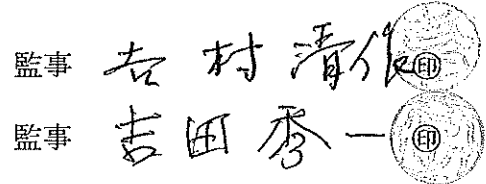 監事 吉村清作㊞
監事 吉田秀一㊞